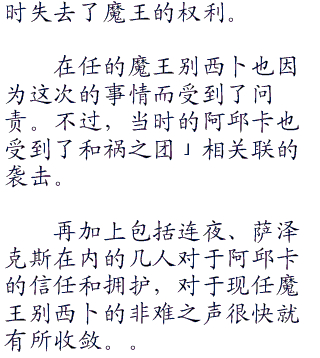 时失去了魔王的权利。
在任的魔王别西卜也因
为这次的事情而受到了问
责。不过，当时的阿邱卡也
受到了和祸之团」相关联的
袭击。
再加上包括连夜、萨泽
克斯在内的几人对于阿邱卡
的信任和拥护，对于现任魔
王别西卜的非难之声很快就
有所收敛。。